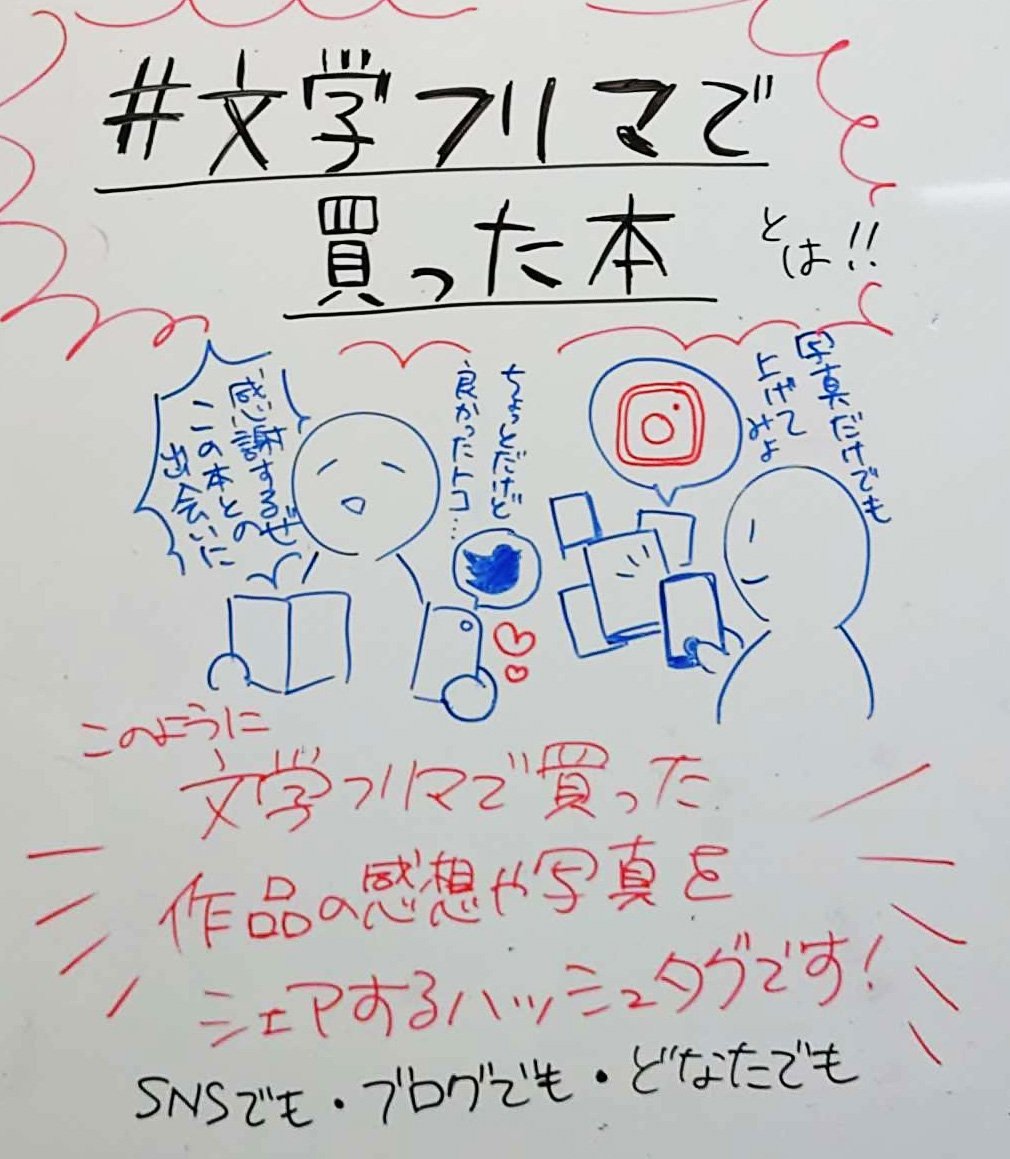 #文学フリマで
買った本
とは!!
感謝するぜ
この本との
出会いに
ちょっとだけど
良かったトコ…
写真だけでも
上げて
みよ
このように
文学フリマで買った
作品の感想や写真を
シェアするハッシュタグです!
SNSでも・ブログでも・どなたでも